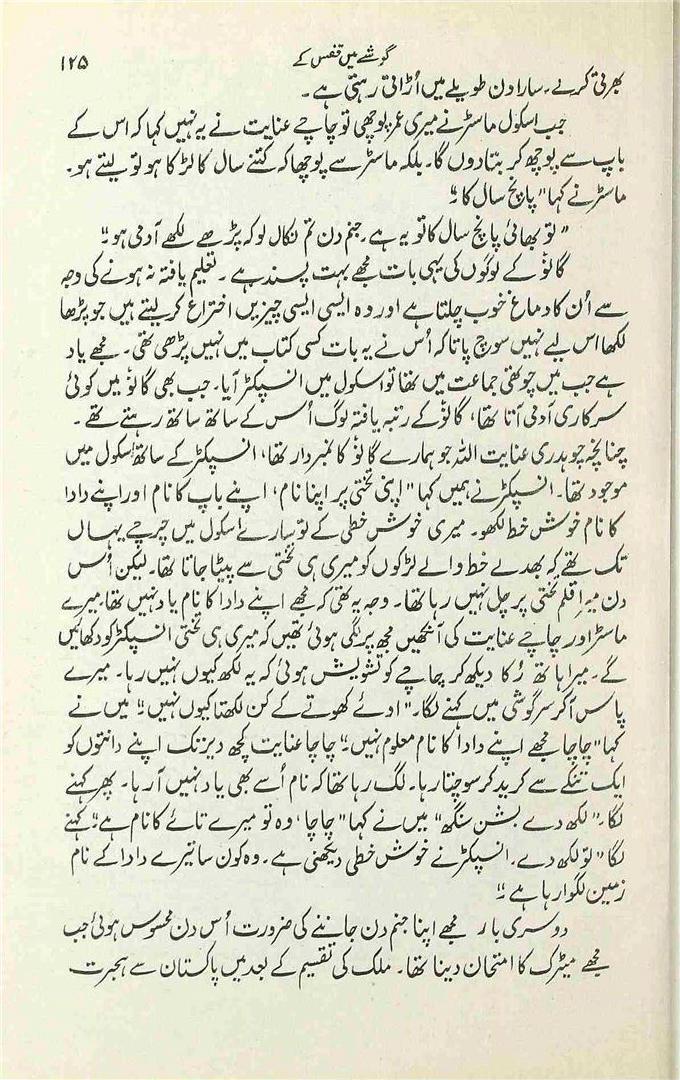 گوشے میں قفس کے
۱۲۵
بھرتی کرنے۔ سارا دن طویلے میں اُڑاتی رہتی ہے۔
جب اسکول ماسٹر نے میری عمر پوچھی تو چاچے عنایت نے یہ نہیں کہا کہ اس کے
باپ سے پوچھ کر بتا دوں گا۔ بلکہ ماسٹر سے پوچھا کہ کتنے سال کا لڑکا ہو تو لیتے ہو۔
ماسٹر نے کہا "پانچ سال کا۔"
"تو بھائی پانچ سال کا تو یہ ہے۔ جنم دن تم نکال لو کہ پڑھے لکھے آدمی ہو۔"
گانؤ کے لوگوں کی یہی بات مجھے بہت پسند ہے۔ تعلیم یافتہ نہ ہونے کی وجہ
سے اُن کا دماغ خوب چلتا ہے اور وہ ایسی ایسی چیزیں اختراع کر لیتے ہیں جو پڑھا
لکھا اس لیے نہیں سوچ پاتا کہ اُس نے یہ بات کسی کتاب میں نہیں پڑھی تھی۔ مجھے یاد
ہے جب میں چوتھی جماعت میں تھا تو اسکول میں انسپکٹر آیا۔ جب بھی گانؤ میں کوئی
سرکاری آدمی آتا تھا، گانؤ کے رتبہ یافتہ لوگ اُس کے ساتھ ساتھ رہتے تھے۔
چنانچہ چوہدری عنایت اللہ جو ہمارے گانؤ کا نمبردار تھا، انسپکٹر کے ساتھ اسکول میں
موجود تھا۔ انسپکٹر نے ہمیں کہا "اپنی تختی پر اپنا نام، اپنے باپ کا نام اور اپنے دادا
کا نام خوش خط لکھو۔ میری خوش خطی کے تو سارے اسکول میں چرچے یہاں
تک تھے کہ بھدے خط والے لڑکوں کو میری ہی تختی سے پیٹا جاتا تھا۔ لیکن اُس
دن میرا قلم تختی پر چل نہیں رہا تھا۔ وجہ یہ تھی کہ مجھے اپنے دادا کا نام یاد نہیں تھا۔ میرے
ماسٹر اور چاچے عنایت کی آنکھیں مجھ پر لگی ہوئی تھیں کہ میری ہی تختی انسپکٹر کو دکھائیں
گے۔ میرا ہاتھ رُکا دیکھ کر چاچے کو تشویش ہوئی کہ یہ لکھ کیوں نہیں رہا۔ میرے
پاس آ کر سرگوشی میں کہنے لگا۔ "اوئے کھوتے کے کن لکھتا کیوں نہیں۔" میں نے
کہا "چاچا مجھے اپنے دادا کا نام معلوم نہیں۔" چاچا عنایت کچھ دیر تک اپنے دانتوں کو
ایک تنکے سے کرید کر سوچتا رہا۔ لگ رہا تھا کہ نام اُسے بھی یاد نہیں آ رہا۔ پھر کہنے
لگا۔ "لکھ دے بشن سنگھ" میں نے کہا "چاچا، وہ تو میرے تائے کا نام ہے۔" کہنے
لگا "تو لکھ دے۔ انسپکٹر نے خوش خطی دیکھنی ہے۔ وہ کون سا تیرے دادا کے نام
زمین لگوا رہا ہے۔"
دوسری بار مجھے اپنا جنم دن جاننے کی ضرورت اُس دن محسوس ہوئی جب
مجھے میٹرک کا امتحان دینا تھا۔ ملک کی تقسیم کے بعد میں پاکستان سے ہجرت